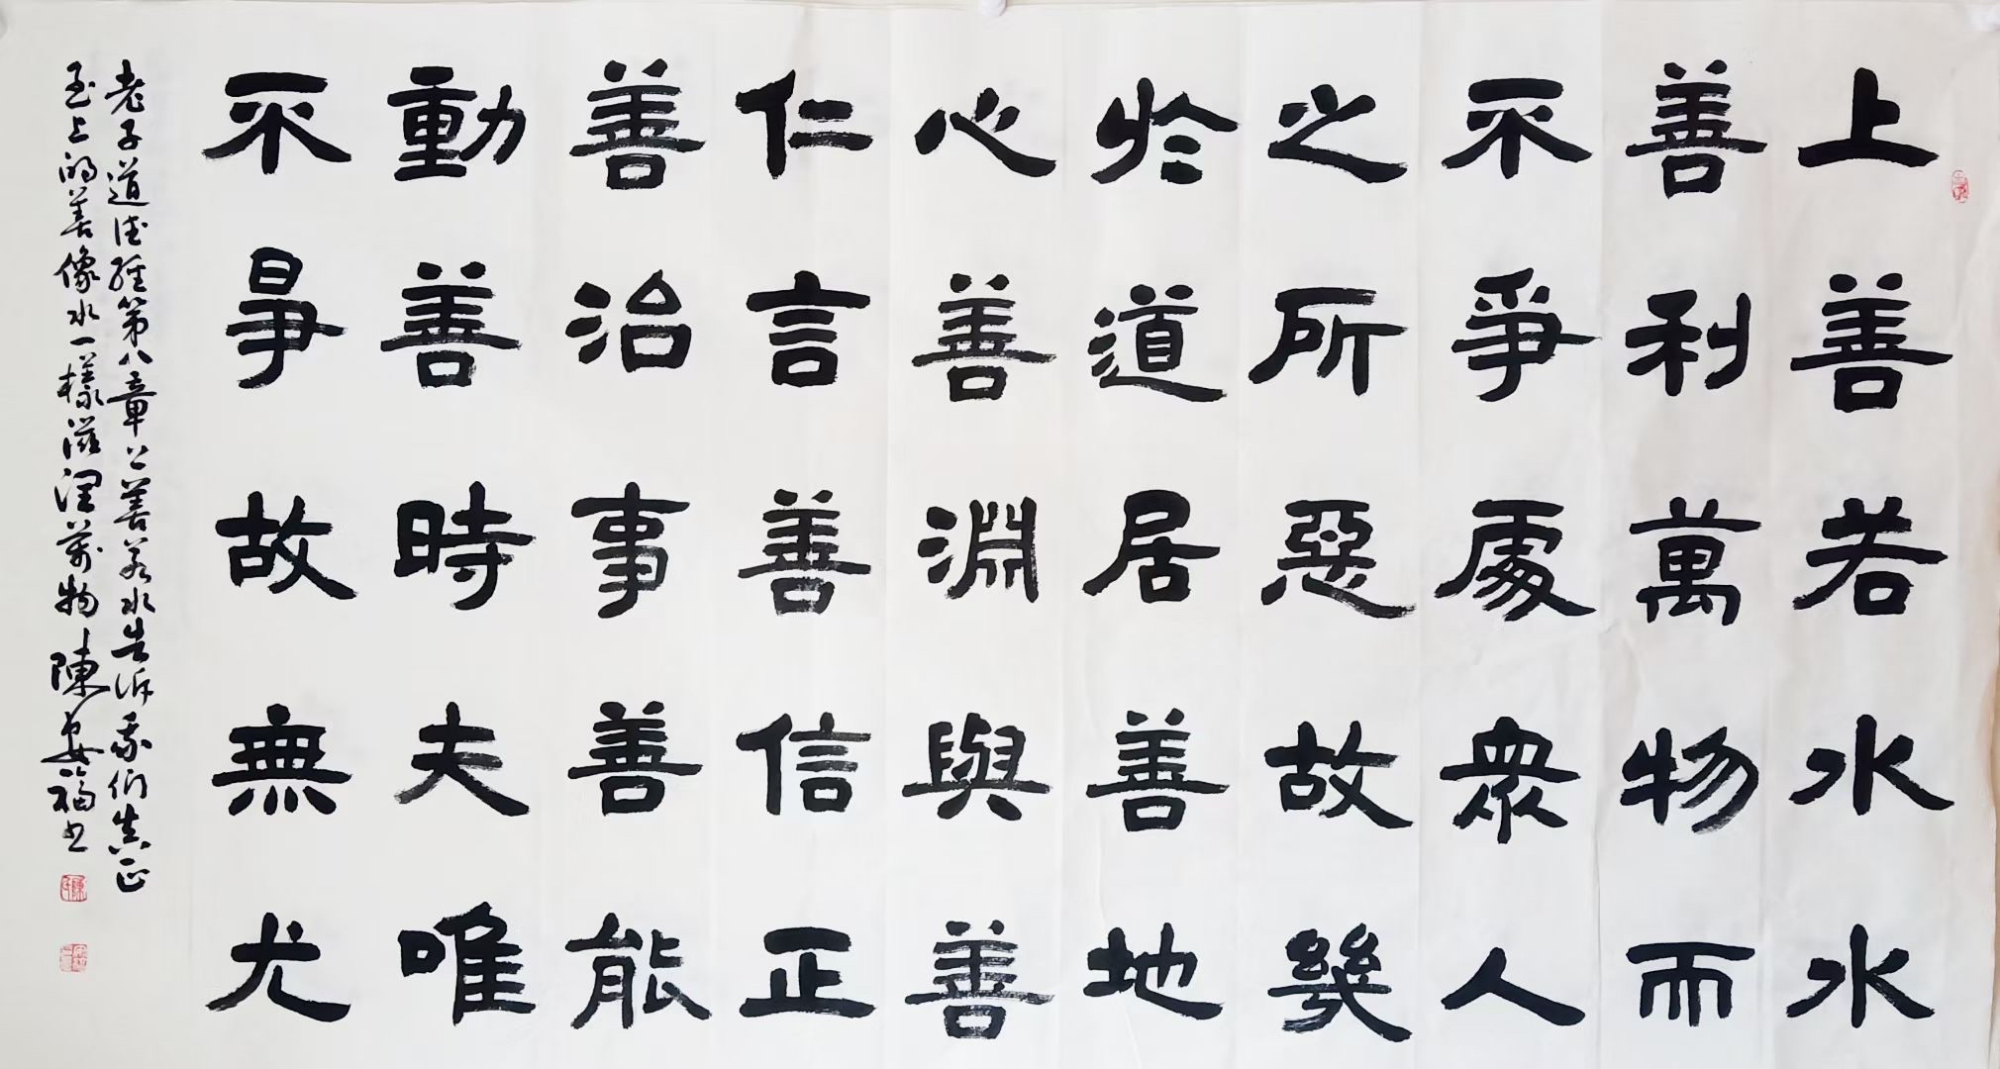 上善若水水
善利萬物而
不爭處衆人
之所惡故幾
於道居善地
心善淵與善
仁言善信正
善治事善能
動善時夫唯
不爭故無尤
老子道德經第八章上善若水告訴我们真正
至上的善像水一樣滋潤萬物陳安福书